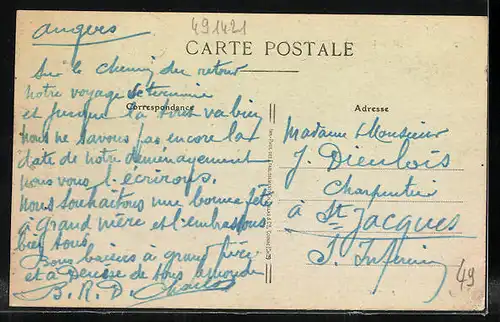 Angers
491421
CARTE POSTALE
Sur le chemin du retour
notre voyage se termine
et jusque là tout va bien
Correspondance
nous ne savons pas encore la
date de notre déménagement
nous vous l'écrirons.
nous souhaitons une bonne fête
à grand père et l'embrassons
bien tous.
Bons baisers à grand père
et à Denise de tous
B. R. D. Charles
Adresse
Madame Monsieur
J. Dieulois
Charpentier
à St Jacques
S. Inférieure
49